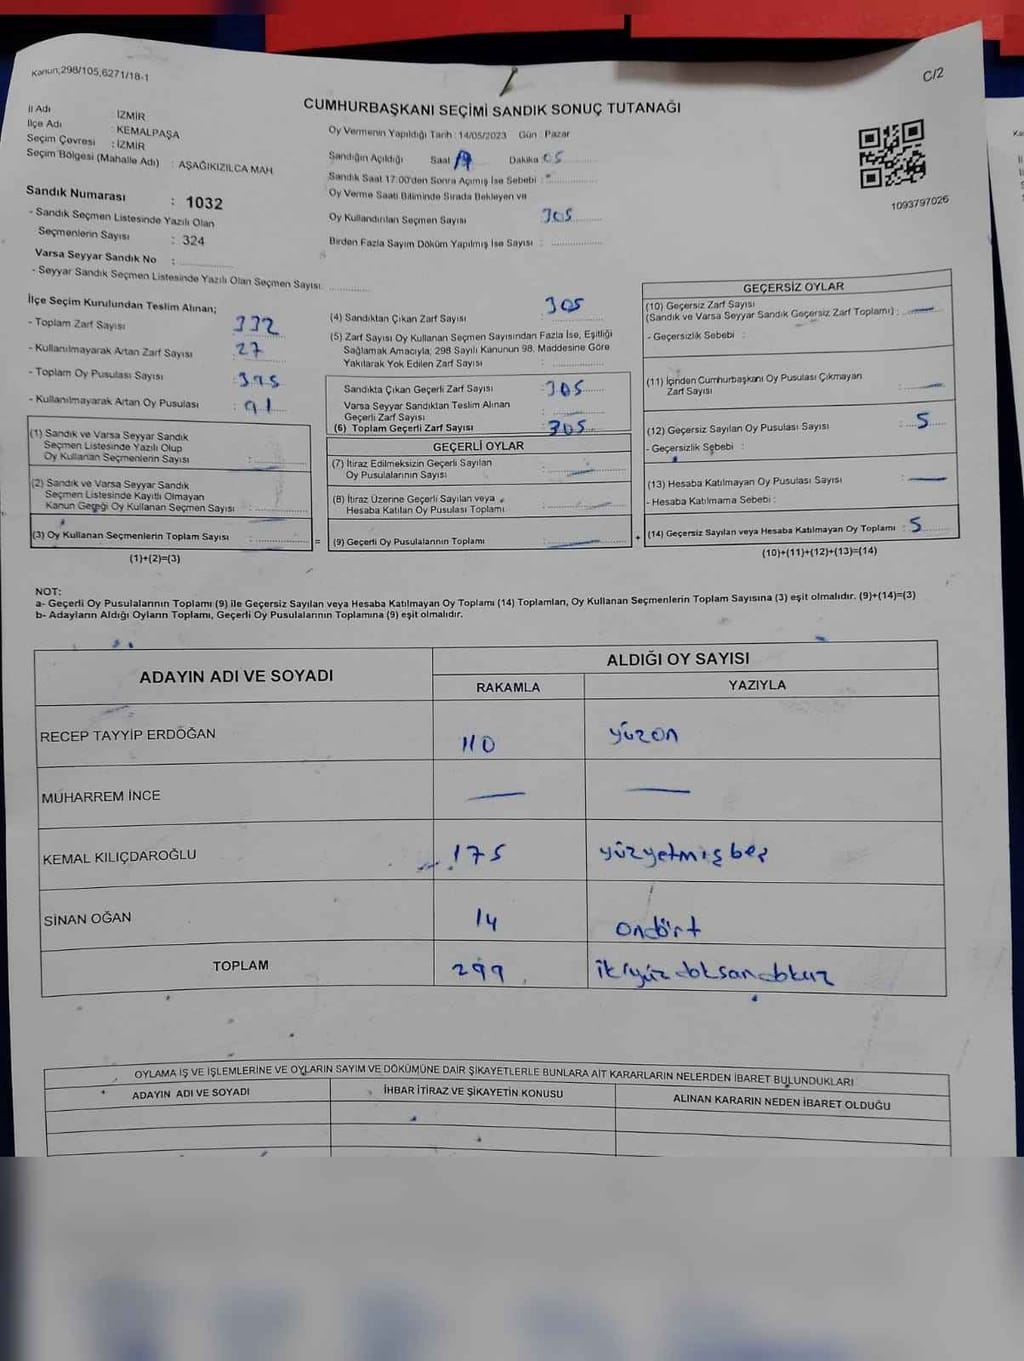 Kanun;298/105,6271/18-1
C/2
CUMHURBAŞKANI SEÇİMİ SANDIK SONUÇ TUTANAĞI
İl Adı : İZMİR
İlçe Adı : KEMALPAŞA
Seçim Çevresi : İZMİR
Seçim Bölgesi (Mahalle Adı) : AŞAĞIKIZILCA MAH
Sandık Numarası : 1032
- Sandık Seçmen Listesinde Yazılı Olan
Seçmenlerin Sayısı : 324
Varsa Seyyar Sandık No :
- Seyyar Sandık Seçmen Listesinde Yazılı Olan Seçmen Sayısı:
Oy Vermenin Yapıldığı Tarih : 14/05/2023 Gün : Pazar
Sandığın Açıldığı Saat Dakika 05
Sandık Saat 17:00'den Sonra Açımış İse Sebebi :
Oy Verme Saati Bitiminde Sırada Bekleyen ve
Oy Kullandırılan Seçmen Sayısı 305
Birden Fazla Sayım Döküm Yapılmış İse Sayısı :
1093797026
İlçe Seçim Kurulundan Teslim Alınan;
- Toplam Zarf Sayısı : 332
- Kullanılmayarak Artan Zarf Sayısı : 27
- Toplam Oy Pusulası Sayısı : 395
- Kullanılmayarak Artan Oy Pusulası : 91
(1) Sandık ve Varsa Seyyar Sandık
Seçmen Listesinde Yazılı Olup
Oy Kullanan Seçmenlerin Sayısı :
(2) Sandık ve Varsa Seyyar Sandık
Seçmen Listesinde Kayıtlı Olmayan
Kanun Gereği Oy Kullanan Seçmen Sayısı :
(3) Oy Kullanan Seçmenlerin Toplam Sayısı : =
(1)+(2)=(3)
(4) Sandıktan Çıkan Zarf Sayısı : 305
(5) Zarf Sayısı Oy Kullanan Seçmen Sayısından Fazla İse, Eşitliği
Sağlamak Amacıyla; 298 Sayılı Kanunun 98. Maddesine Göre
Yakılarak Yok Edilen Zarf Sayısı :
Sandıkta Çıkan Geçerli Zarf Sayısı : 305
Varsa Seyyar Sandıktan Teslim Alınan
Geçerli Zarf Sayısı :
(6) Toplam Geçerli Zarf Sayısı : 305
GEÇERLİ OYLAR
(7) İtiraz Edilmeksizin Geçerli Sayılan
Oy Pusulalarının Sayısı :
(8) İtiraz Üzerine Geçerli Sayılan veya
Hesaba Katılan Oy Pusulası Toplamı :
(9) Geçerli Oy Pusulalarının Toplamı : +
GEÇERSİZ OYLAR
(10) Geçersiz Zarf Sayısı
(Sandık ve Varsa Seyyar Sandık Geçersiz Zarf Toplamı) : —
- Geçersizlik Sebebi :
(11) İçinden Cumhurbaşkanı Oy Pusulası Çıkmayan
Zarf Sayısı : —
(12) Geçersiz Sayılan Oy Pusulası Sayısı : 5
- Geçersizlik Sebebi :
(13) Hesaba Katılmayan Oy Pusulası Sayısı : —
- Hesaba Katılmama Sebebi :
(14) Geçersiz Sayılan veya Hesaba Katılmayan Oy Toplamı : 5
(10)+(11)+(12)+(13)=(14)
NOT:
a- Geçerli Oy Pusulalarının Toplamı (9) ile Geçersiz Sayılan veya Hesaba Katılmayan Oy Toplamı (14) Toplamları, Oy Kullanan Seçmenlerin Toplam Sayısına (3) eşit olmalıdır. (9)+(14)=(3)
b- Adayların Aldığı Oyların Toplamı, Geçerli Oy Pusulalarının Toplamına (9) eşit olmalıdır.
ADAYIN ADI VE SOYADI
ALDIĞI OY SAYISI
RAKAMLA YAZIYLA
RECEP TAYYİP ERDOĞAN 110 yüzon
MUHARREM İNCE — —
KEMAL KILIÇDAROĞLU 175 yüzyetmişbeş
SİNAN OĞAN 14 ondört
TOPLAM 299 ikiyüzdoksandokuz
OYLAMA İŞ VE İŞLEMLERİNE VE OYLARIN SAYIM VE DÖKÜMÜNE DAİR ŞİKAYETLERLE BUNLARA AİT KARARLARIN NELERDEN İBARET BULUNDUKLARI
ADAYIN ADI VE SOYADI İHBAR İTİRAZ VE ŞİKAYETİN KONUSU ALINAN KARARIN NEDEN İBARET OLDUĞU